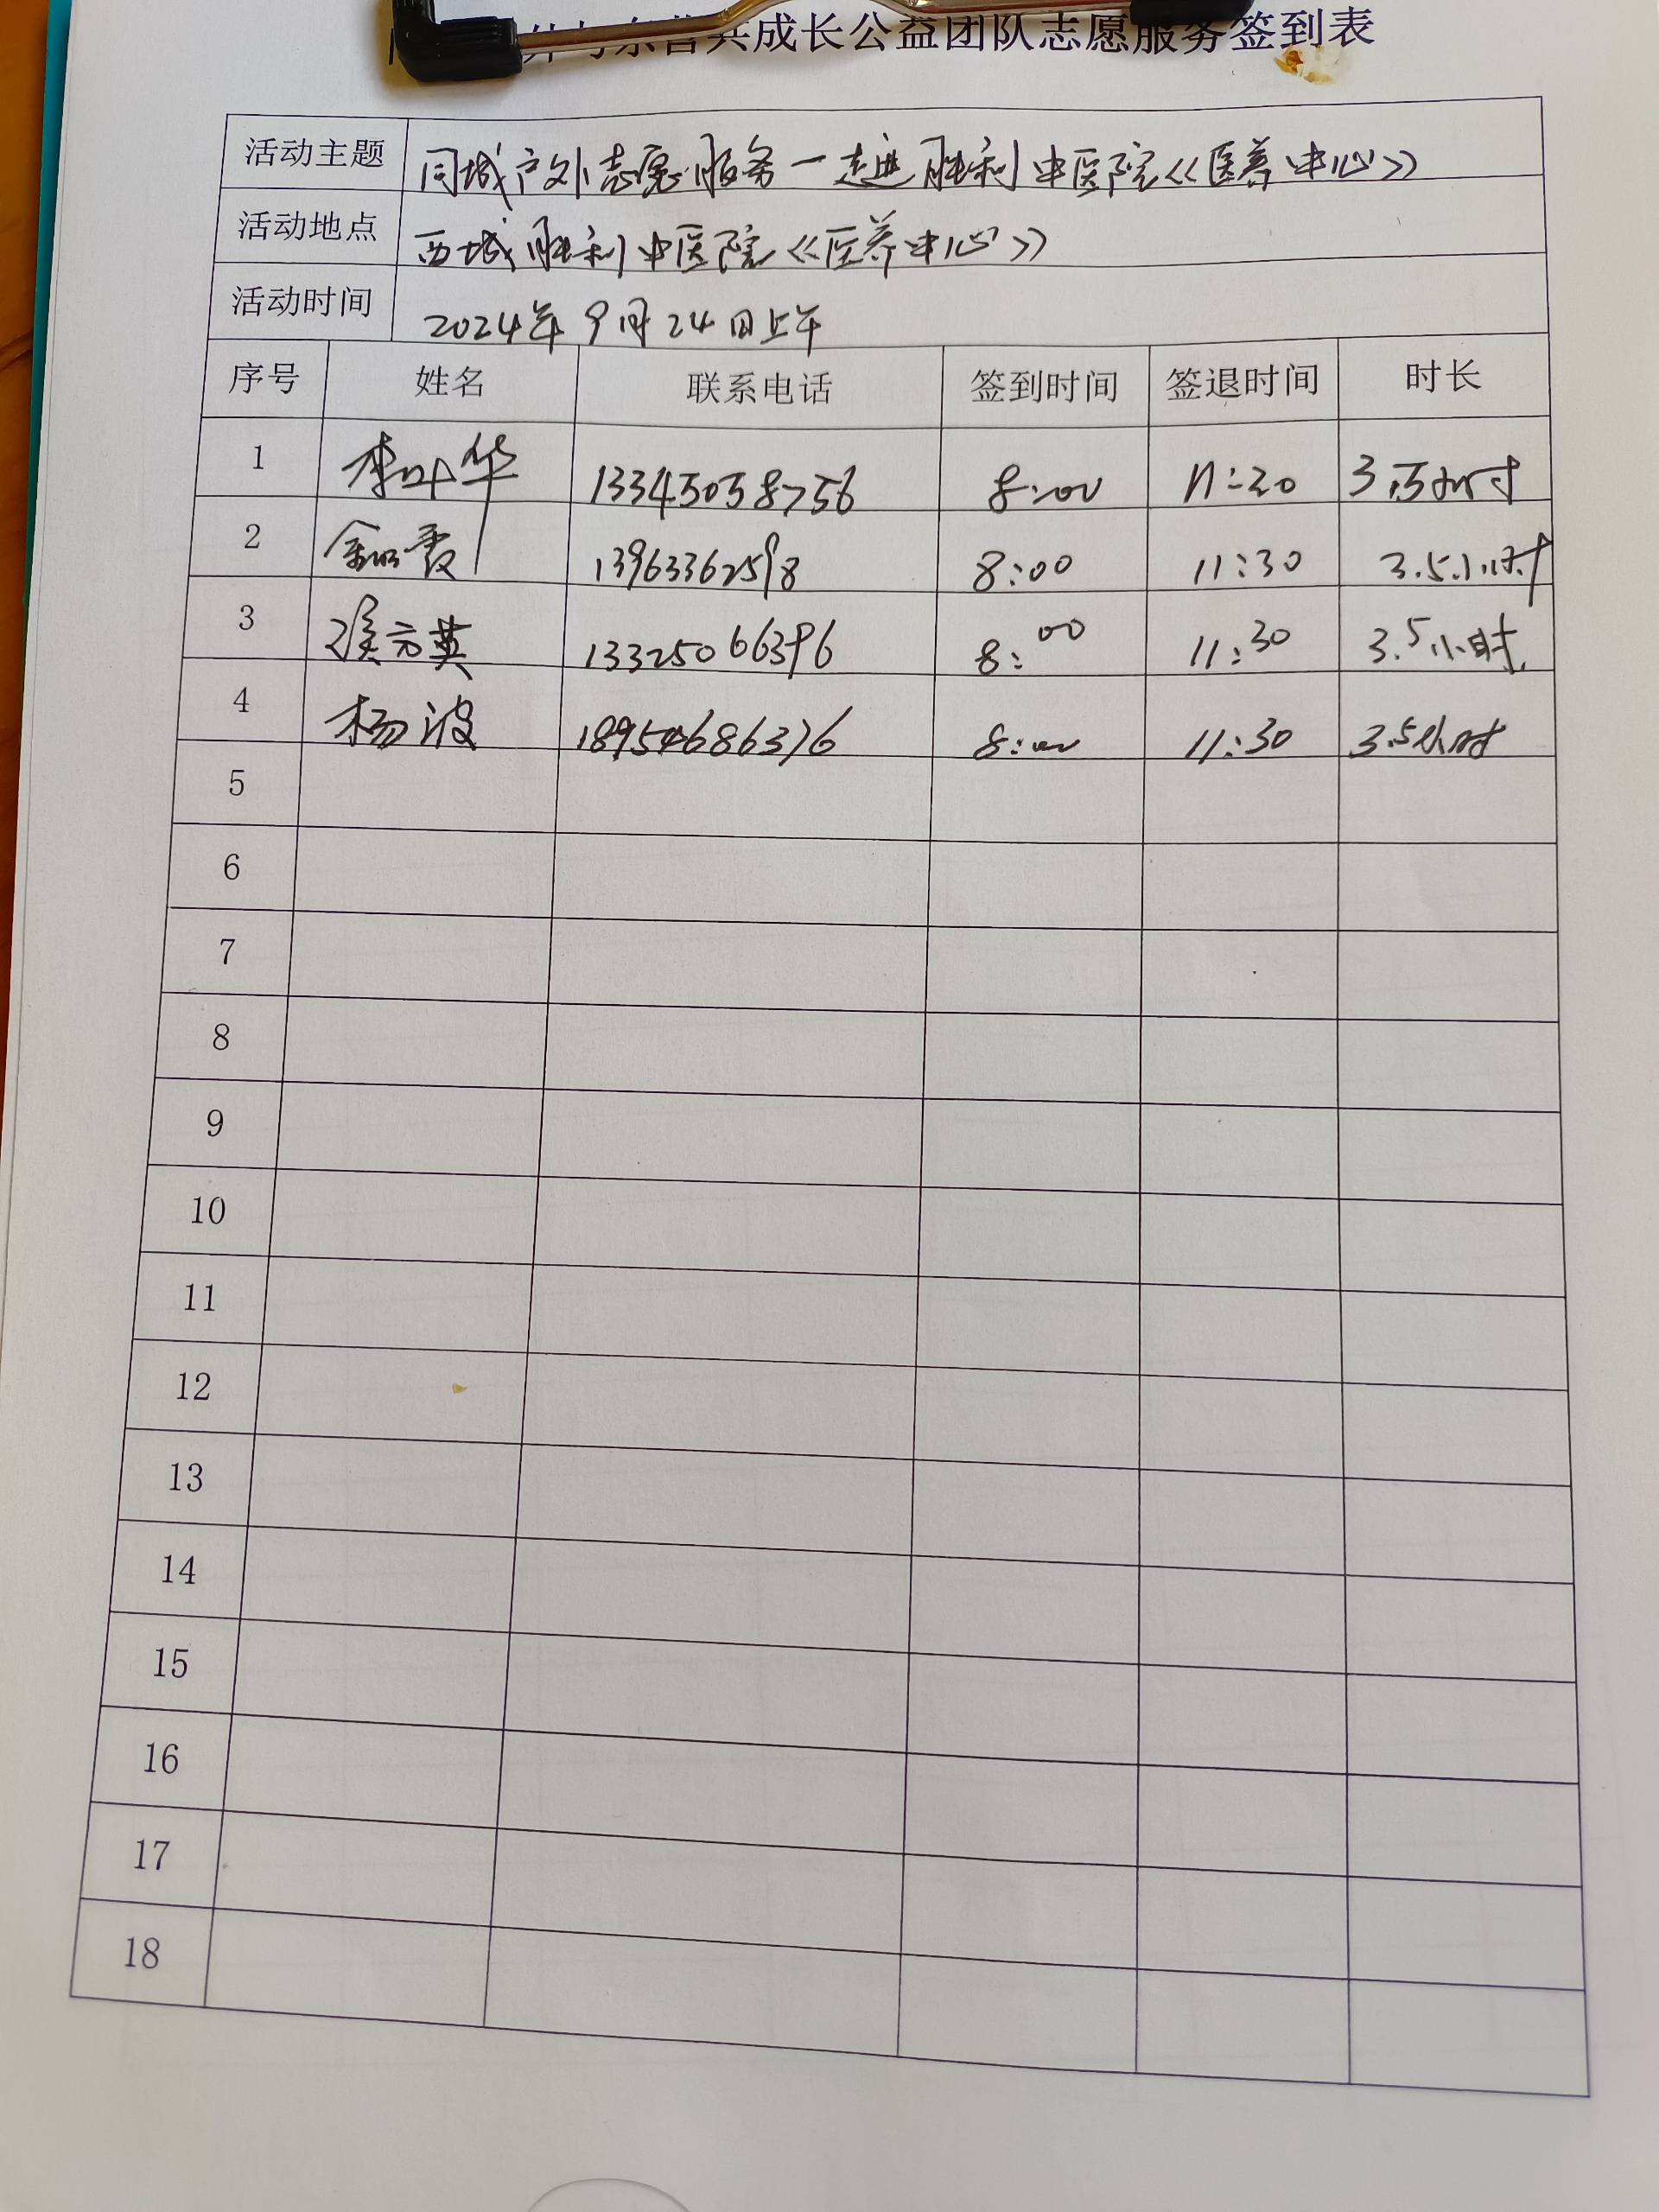 与东营共成长公益团队志愿服务签到表
活动主题 同城户外志愿服务一走进胜利中医院《医养中心》
活动地点 西城胜利中医院《医养中心》
活动时间 2024年9月24日上午
序号 姓名 联系电话 签到时间 签退时间 时长
1 李叶华 13345058756 8:00 11:30 3.5小时
2 霞 13963362598 8:00 11:30 3.5小时
3 英 13325066396 8:00 11:30 3.5小时
4 杨波 18954686376 8:00 11:30 3.5小时
5
6
7
8
9
10
11
12
13
14
15
16
17
18